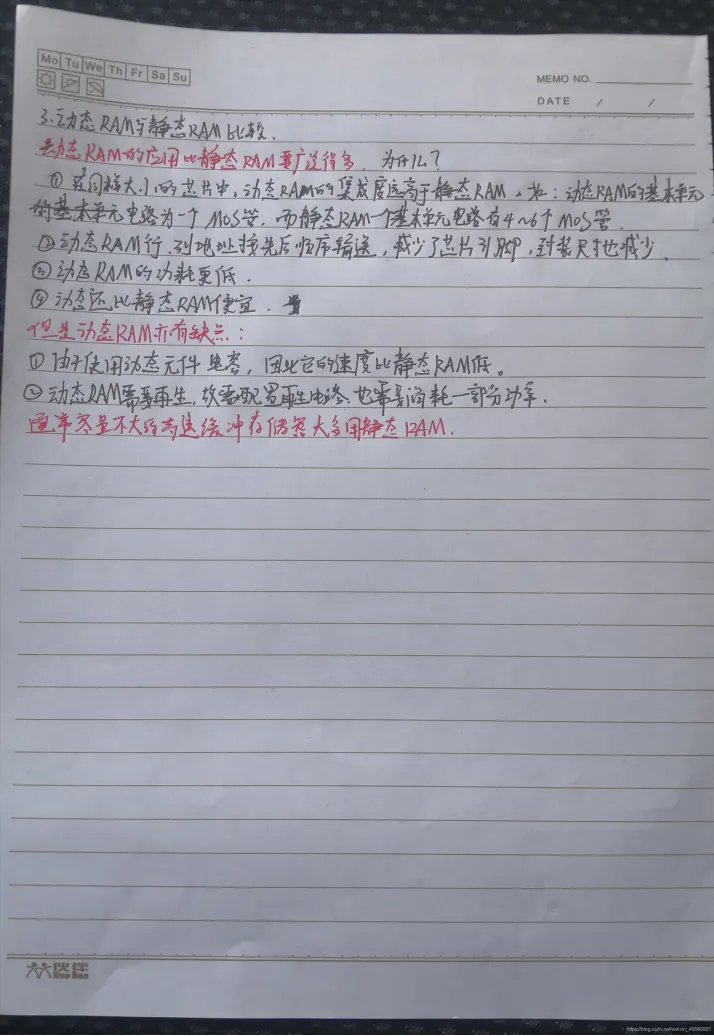 Mo Tu We Th Fr Sa Su
MEMO NO.
DATE / /
3.动态RAM与静态RAM比较.
动态RAM的应用比静态RAM要广泛得多. 为什么?
① 在同样大小的芯片中,动态RAM的集成度远高于静态RAM。如:动态RAM的基本单元
的基本单元电路为一个MOS管,而静态RAM一个基本单元电路有4~6个MOS管.
②动态RAM行、列地址按先后顺序输送,减少了芯片引脚,封装尺寸也减少.
③动态RAM的功耗更低.
④ 动态还比静态RAM便宜.
但是动态RAM亦有缺点:
① 由于使用动态元件 电容,因此它的速度比静态RAM低。
② 动态RAM需要再生,故需配置再生电路,也需要消耗一部分功率.
通常容量不大的高速缓冲存储器大多用静态RAM.
伙伴
Huo Ban
https://blog.csdn.net/weixin_45840087